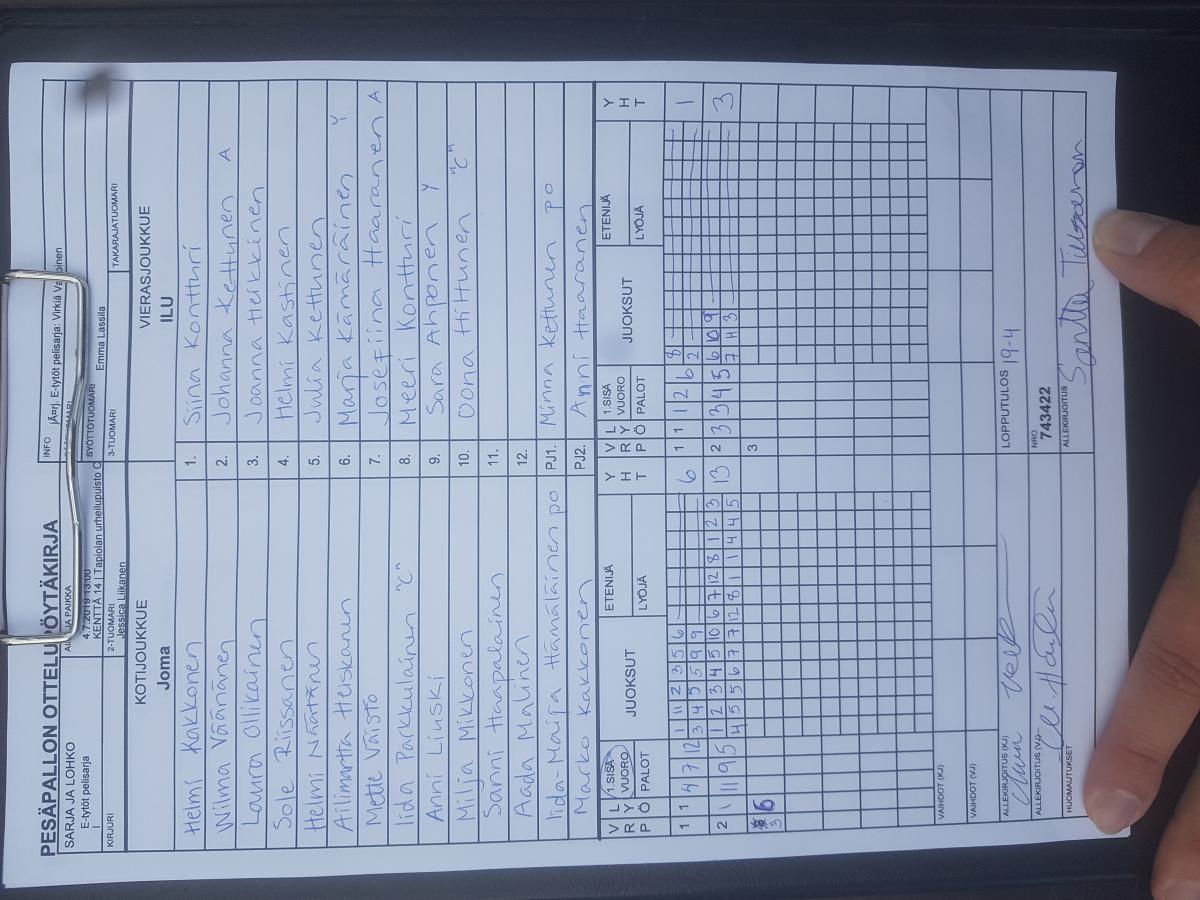 PESÄPALLON OTTELUPÖYTÄKIRJA
SARJA JA LOHKO
E-tytöt pelisarja
JA PAIKKA
4.7.2019 13:00
KENTTÄ 14 | Tapiolan urheilupuisto
INFO
E-tytöt pelisarja: Virkiä
SYÖTTÖTUOMARI
Emma Lassila
KIRJURI
2-TUOMARI
Jessica Liikanen
3-TUOMARI
TAKARAJATUOMARI
KOTIJOUKKUE
Joma
VIERASJOUKKUE
ILU
Helmi Kakkonen 1. Siina Kontturi
Wilma Väänänen 2. Johanna Kettunen A
Laura Ollikainen 3. Joanna Heikkinen
Sole Riissanen 4. Helmi Kastinen
Helmi Näätänen 5. Julia Kettunen
Ailimartta Heiskanen 6. Marja Kämäräinen Y
Mette Väistö 7. Josefiina Haaranen A
Iida Parkkulainen "C" 8. Meeri Kontturi
Anni Liuski 9. Sara Ahponen Y
Milja Mikkonen 10. Oona Hiltunen "C"
Sanni Haapalainen 11.
Aada Malinen 12.
Iida-Maija Hämäläinen po PJ1. Minna Kettunen po
Marko Kakkonen PJ2. Anni Haaranen
VRP LYÖ 1.SISÄ VUORO PALOT JUOKSUT ETENIJÄ LYÖJÄ YHT VRP LYÖ 1.SISÄ VUORO PALOT JUOKSUT ETENIJÄ LYÖJÄ YHT
1 1 4 7 12 1 11 2 3 5 6 6 1 1 1 2 6 8 1
3 4 5 5 9 9 2
2 1 11 9 5 1 2 3 4 5 10 6 7 12 8 1 2 3 13 2 3 3 4 5 6 10 9 3
4 5 5 6 7 7 12 8 1 1 4 4 5 7 11 3
3 6 3
VAIHDOT (KJ)
VAIHDOT (VJ)
ALLEKIRJOITUS (KJ)
LOPPUTULOS 19-4
ALLEKIRJOITUS (VJ)
NRO
743422
HUOMAUTUKSET
ALLEKIRJOITUS